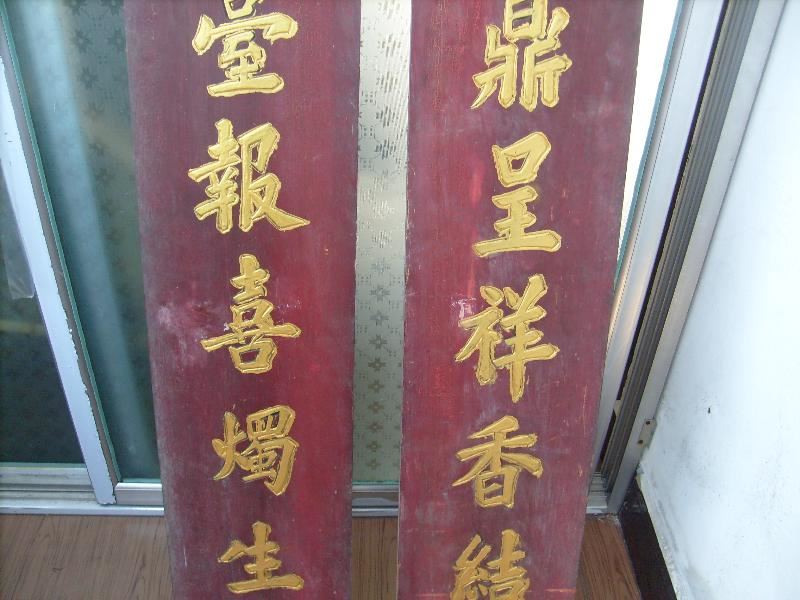 鼎呈祥香結
臺報喜燭生